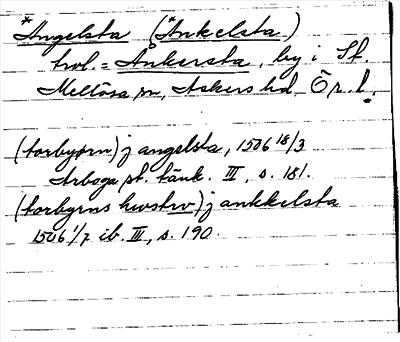 *Angelsta (*Ankelsta)
trol. = Ånkersta, by i St.
Mellösa sn, Askers hd, Ör. l.
(torbyørn) j angelsta, 1506 18/3
Arboga st. tänk. III, s. 181.
(torbyrns hwstrv) j ankkelsta
1506 1/7 ib. III, s. 190.